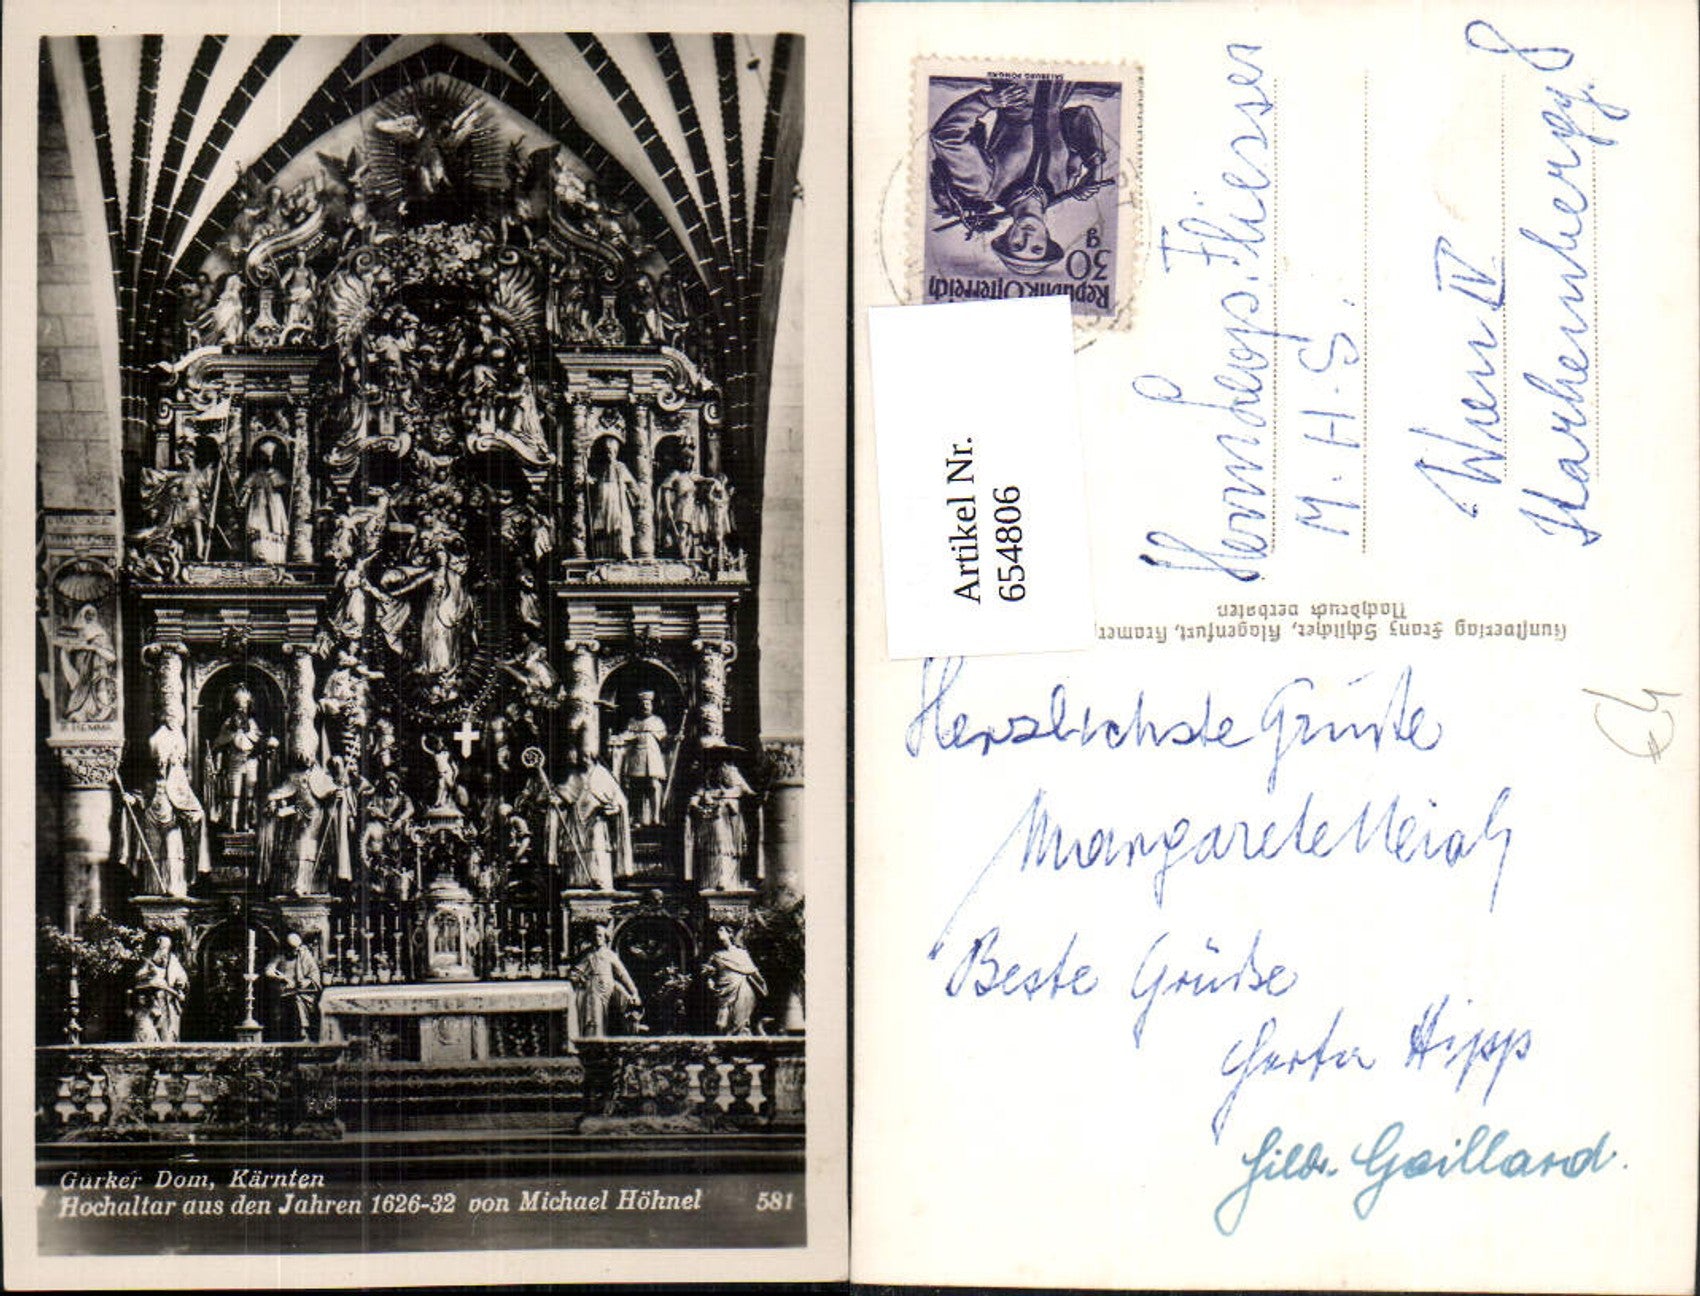 Gurker Dom, Kärnten
Hochaltar aus den Jahren 1626-32 von Michael Höhnel 581
SALZBURG PONGAU
30
g
Republik Österreich
Artikel Nr.
654806
M. H. S.
Wien IV
Kunstverlag Franz Schilcher, Klagenfurt, Kramer
Nachdruck verboten
Herzlichste Grüße
Margarete
Beste Grüße
Gerta Hipp
Gaillard.